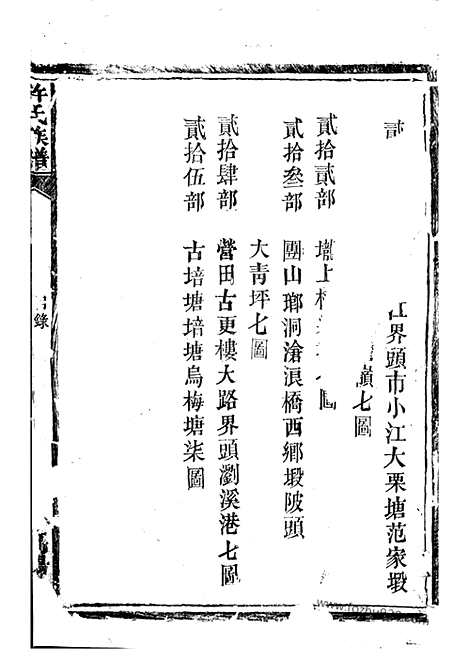 界頭市小江大栗塘范家塅
嶺七圖
貳拾貳部 壠上
貳拾叁部 團山瑯洞滄浪橋西鄉塅陂頭
大青坪七圖
貳拾肆部 營田古更樓大路界頭瀏溪港七圖
貳拾伍部 古培塘培塘烏梅塘柒圖
許氏族譜
錄